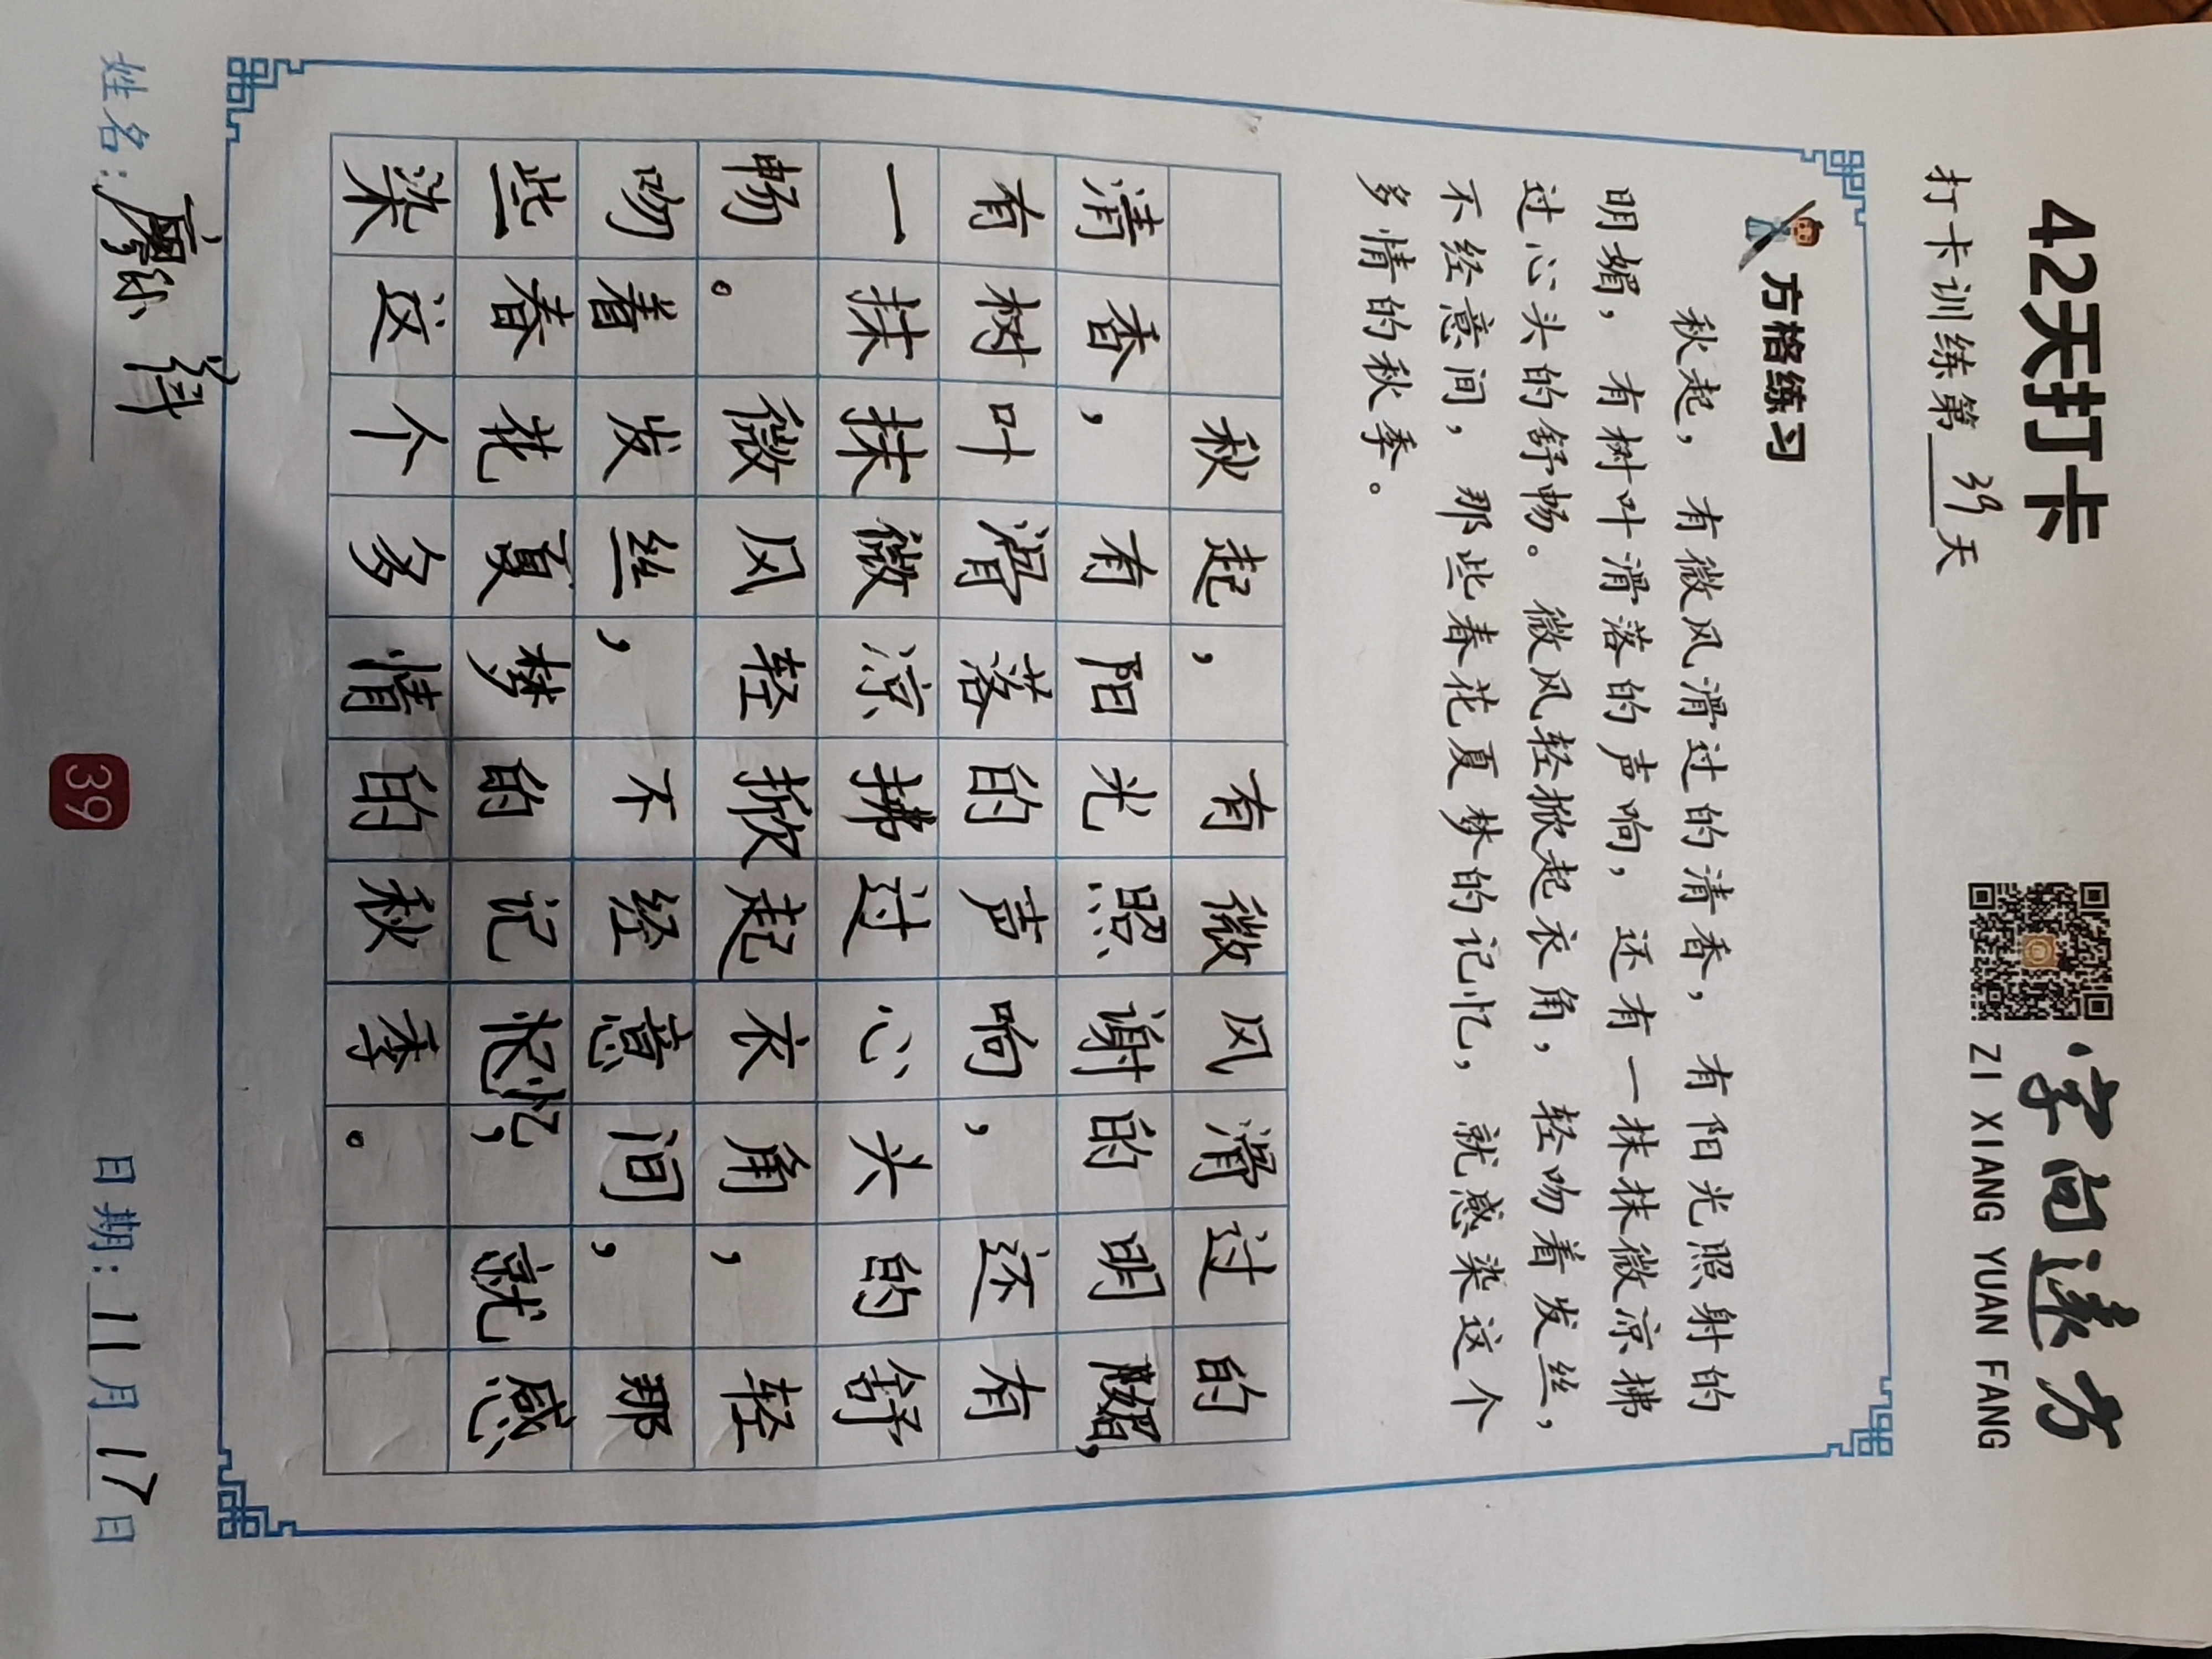 42天打卡
打卡训练第39天
字向遠方
ZI XIANG YUAN FANG
方格练习
秋起，有微风滑过的清香，有阳光照射的
明媚，有树叶滑落的声响，还有一抹抹微凉拂
过心头的舒畅。微风轻掀起衣角，轻吻着发丝，
不经意间，那些春花夏梦的记忆，就感染这个
多情的秋季。
秋起，有微风滑过的
清香，有阳光照谢的明媚，
有树叶滑落的声响，还有
一抹抹微凉拂过心头的舒
畅。微风轻掀起衣角，轻
吻着发丝，不经意间，那
些春花夏梦的记忆，就感
染这个多情的秋季。
姓名：廖
日期：11月17日
39